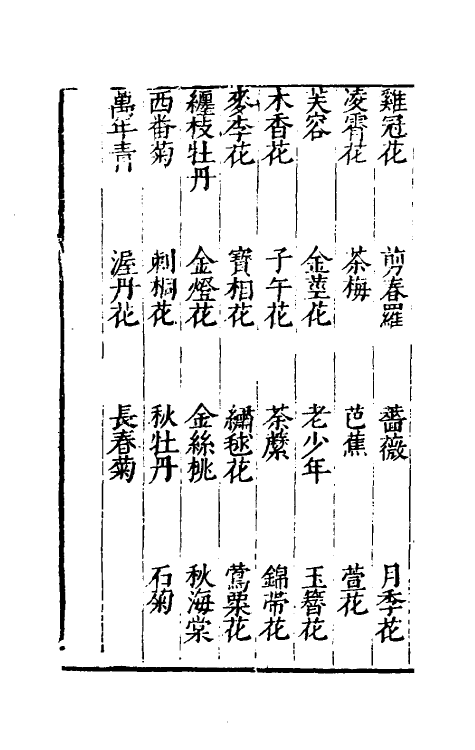 雞冠花　剪春羅　薔薇　月季花
凌霄花　茶梅　芭蕉　萱花
芙容　金莖花　老少年　玉簪花
木香花　子午花　荼䕷　錦帶花
麥李花　寶相花　繡毬花　鶯粟花
纏枝牡丹　金燈花　金絲桃　秋海棠
西番菊　刺桐花　秋牡丹　石菊
萬年青　渥丹花　長春菊